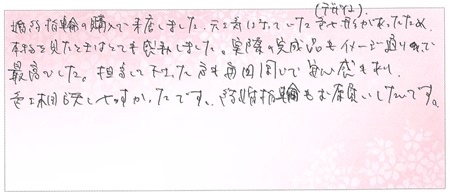 (デザイン)
婚約指輪の購入で来店しました。元々気になっていた
本物を見たときはとても感動しました。実際の完成品もイメージ通りで
最高でした。担当して下さった方も毎回同じで安心感もあり
相談しやすかったです。結婚指輪もお願いしたいです。